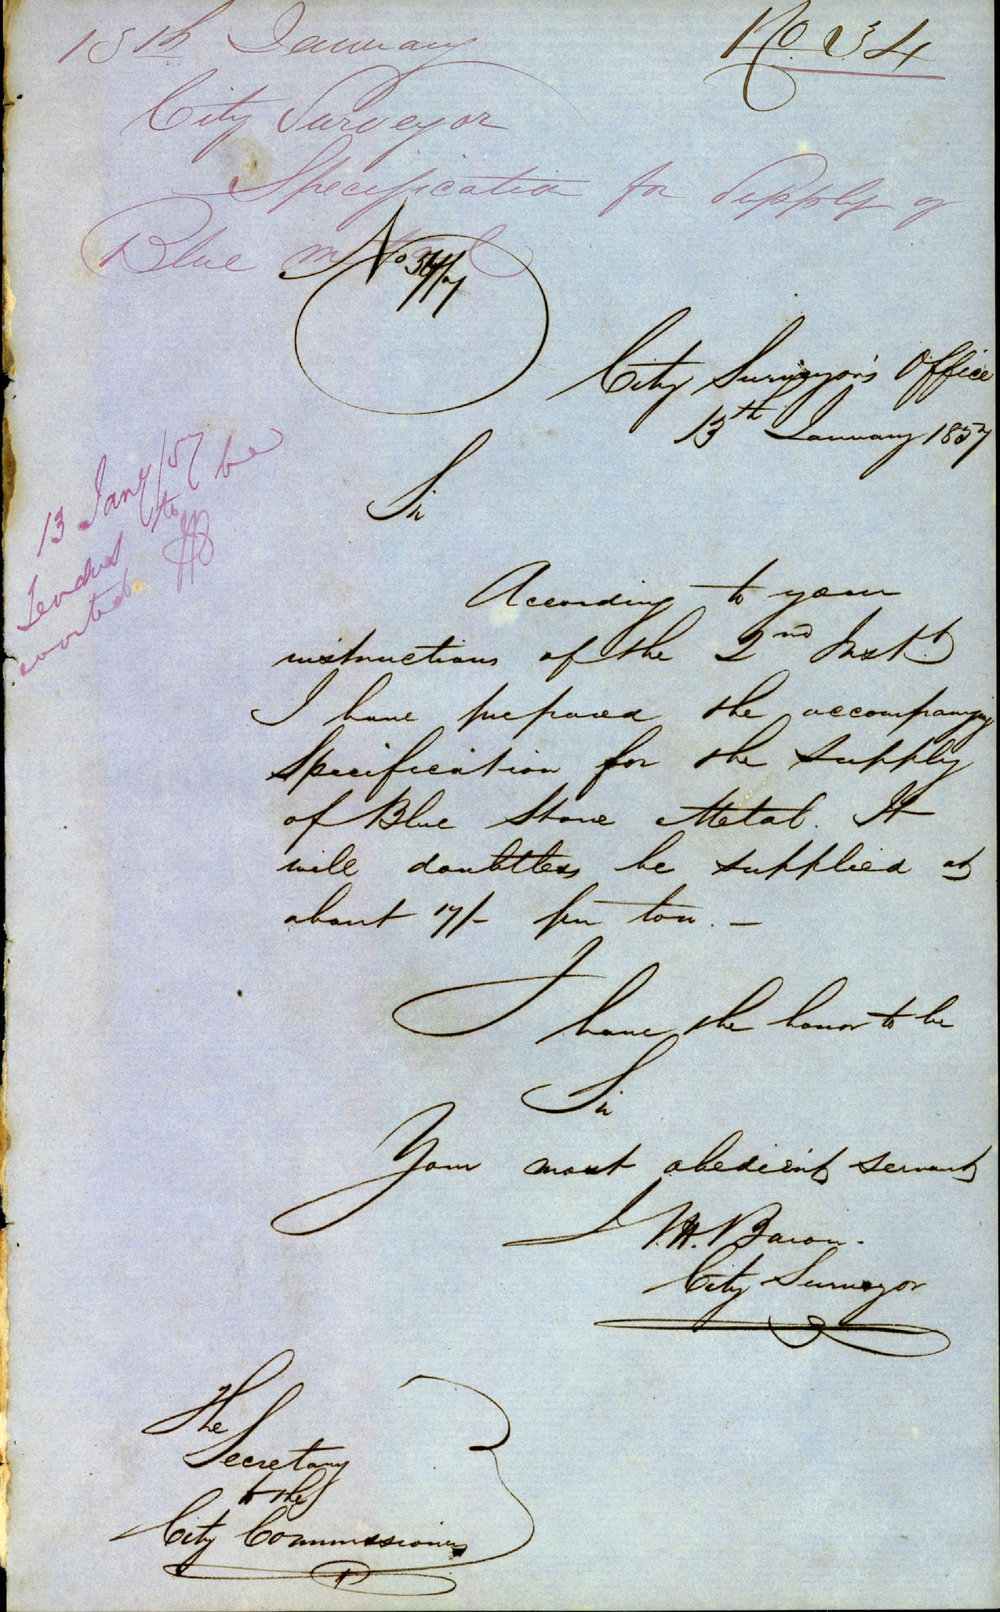 13th January
No. 34
City Surveyor
Specification for Supply of
Blue metal
No 34/57
City Surveyor's Office
13th January 1857
Sir
According to your
instructions of the 2nd Inst.
I have prepared the accompanying
Specification for the supply
of Blue Stone Metal. It
will doubtless be supplied at
about 17/- per ton. —
I have the honor to be
Sir
Your most obedient servant
City Surveyor
13 Jany/57
to be
The
Secretary
to the
City Commissioners